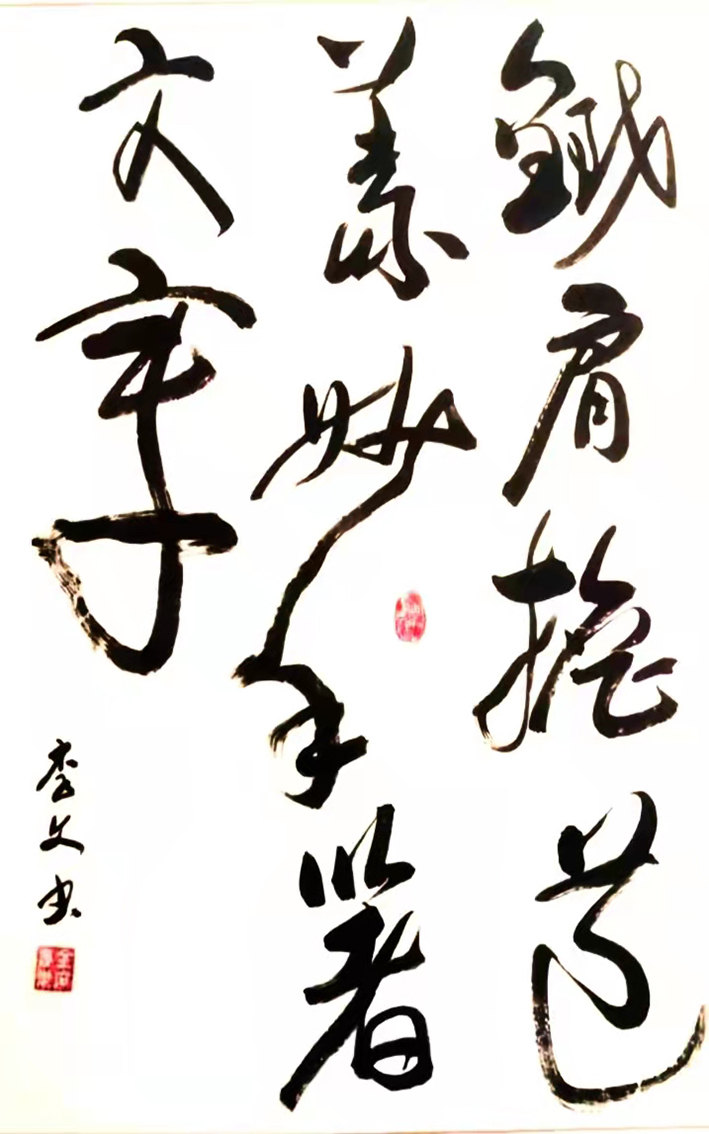 鐵肩擔道
義妙手著
文章
李文书